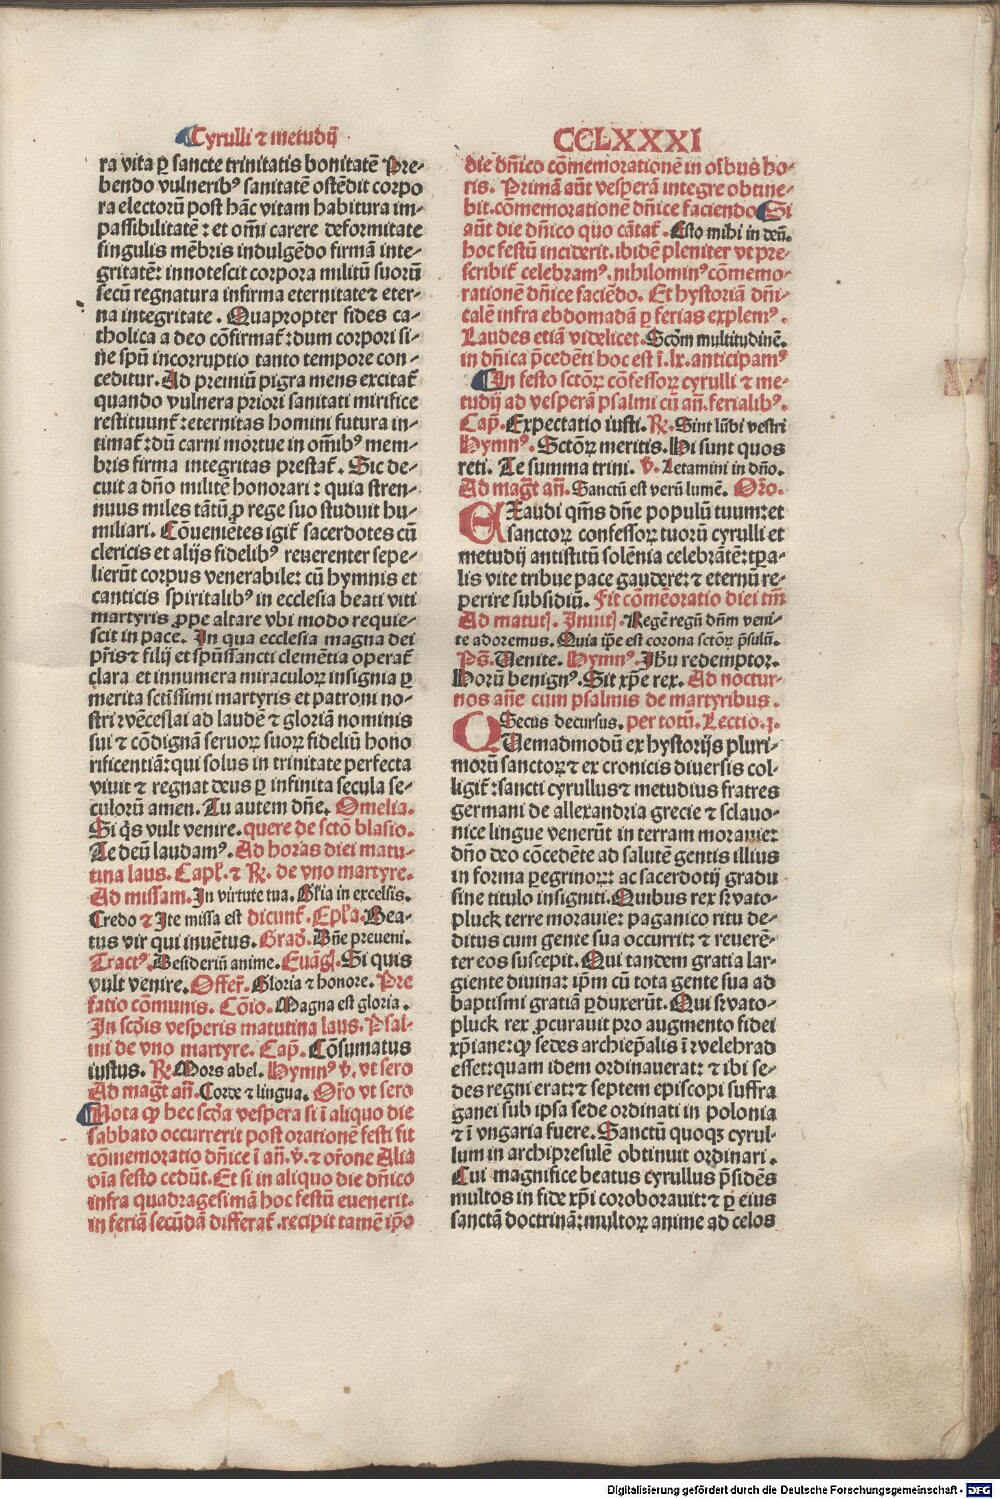 Cyrulli ⁊ metudij̄
ra vita ꝑ sancte trinitatis bonitatē Pre-
bendo vulneribꝰ sanitatē ostēdit corpo
ra electorū post hāc vitam habitura im-
passibilitatē : et om̄i carere deformitate
singulis mēbris indulgēdo firmā inte-
gritatē: innotescit corpora militū suorū
secū regnatura infirma eternitate⁊ eter-
na integritate. Quapropter fides ca-
tholica a deo cōfirmat̄: dum corpori si-
ne spū incorruptio tanto tempore con-
ceditur. Ad premiū pigra mens excitat̄
quando vulnera priori sanitati mirifice
restituunt̄: eternitas homini futura in-
timat̄: dū carni mortue in om̄ibꝰ mem-
bris firma integritas prestat̄. Sic de-
cuit a dn̄o militē honorari: quia stren-
nuus miles tātū ꝓ rege suo studuit hu-
miliari. Cōueniētes igit̄ sacerdotes cū
clericis et alijs fidelibꝰ reuerenter sepe-
lierūt corpus venerabile: cū hymnis et
canticis spiritalibꝰ in ecclesia beati viti
martyris ꝓpe altare vbi modo requie-
scit in pace. In qua ecclesia magna dei
pr̄is⁊ filij et spūssancti clemētia operat̄
clara et innumera miraculoꝝ insignia ꝑ
merita sctissimi martyris et patroni no-
stri wēceslai ad laudē ⁊ gloriā nominis
sui ⁊ cōdignā seruoꝝ suoꝝ fideliū hono
rificentiā: qui solus in trinitate perfecta
viuit ⁊ regnat deus ꝑ infinita secula se-
culorū amen. Tu autem dn̄e. Omelia.
Si q̄s vult venire. quere de sctō blasio.
Te deū laudamꝰ. Ad horas diei matu-
tina laus. Capl̄. ⁊ ℟. de vno martyre.
Ad missam. In virtute tua. Gl̄ia in excelsis.
Credo ⁊ Ite missa est dicunt̄. Epl̄a. Bea-
tus vir qui inuētus. Grad̄. Dn̄e preueni.
Tractꝰ. Desideriū anime. Euāgl̄. Si quis
vult venire. Offer̄. Gloria ⁊ honore. Pre
fatio cōmunis. Cōio. Magna est gloria.
In scd̄is vesperis matutina laus. Psal-
mi de vno martyre. Cap̄. Cōsumatus
iustus. ℟. Mors abel. Hymnꝰ ℣. vt sero
Ad maḡt an̄. Corde ⁊ lingua. Or̄o vt sero
Nota ꝙ hec scd̄a vespera si ī aliquo die
sabbato occurrerit post orationē festi fit
cōmemoratio dn̄ice ī an̄. ℣. ⁊ or̄one Alia
oīa festo cedūt. Et si in aliquo die dn̄ico
infra quadragesimā hoc festū euenerit.
in feriā secūdā differat̄. recipit tamē ip̄o
CCLXXXI
die dn̄ico cōmemorationē in oībus ho-
ris. Primā aūt vesperā integre obtine-
bit. cōmemorationē dn̄ice faciendo Si
aūt die dn̄ico quo cātat̄. Esto mihi in deū.
hoc festū inciderit. ibidē pleniter vt pre-
scribit̄ celebramꝰ. nihilominꝰ cōmemo-
rationē dn̄ice faciēdo. Et hystoriā dn̄i-
calē infra ebdomadā ꝑ ferias explemꝰ.
Laudes etiā videlicet. Scd̄m multitudinē.
in dn̄ica p̄cedēti hoc est ī. lx. anticipamꝰ
In festo sctōꝝ cōfessoꝝ cyrulli ⁊ me-
tudij ad vesperā psalmi cū an̄. ferialibꝰ.
Cap̄. Expectatio iusti. ℟. Sint lūbi vestri
Hymnꝰ. Sctōꝝ meritis. Hi sunt quos
reti. Te summa trini. ℣. Letamini in dn̄o.
Ad maḡt an̄. Sanctū est verū lumē. Or̄o.
EXaudi q̄m̄s dn̄e populū tuum: et
sanctoꝝ confessoꝝ tuorū cyrulli et
metudij antistitū solēnia celebrātē: tp̄a-
lis vite tribue pace gaudere: ⁊ eternū re-
perire subsidiū. Fit cōmēoratio diei tm̄
Ad matut̄. Inuit̄. Regē regū dn̄m veni-
te adoremus. Quia ip̄e est corona sctōꝝ p̄sulū.
Ps̄. Uenite. Hymnꝰ. Jh̄u redemptor.
Horū benignꝰ. Sit xp̄e rex. Ad noctur-
nos an̄e cum psalmis de martyribus.
Secus decursus. per totū. Lectio. j.
QUemadmodū ex hystorijs pluri-
morū sanctoꝝ⁊ ex cronicis diuersis col-
ligit̄: sancti cyrullus⁊ metudius fratres
germani de allexandria grecie ⁊ sclauo-
nice lingue venerūt in terram morauie:
dn̄o deo cōcedēte ad salutē gentis illius
in forma ꝑegrinoꝝ: ac sacerdotij gradu
sine titulo insigniti. Quibus rex swato-
pluck terre morauie: paganico ritu de-
ditus cum gente sua occurrit: ⁊ reuerē-
ter eos suscepit. Qui tandem gratia lar-
giente diuina: ip̄m cū tota gente sua ad
baptismi gratiā ꝑduxerūt. Qui swato-
pluck rex ꝓcurauit pro augmento fidei
xp̄iane: ꝙ sedes archiep̄alis ī welehrad
esset: quam idem ordinauerat: ⁊ ibi se-
des regni erat: ⁊ septem episcopi suffra
ganei sub ipsa sede ordinati in polonia
⁊ ī vngaria fuere. Sanctū quoqꝫ cyrul-
lum in archipresulē obtinuit ordinari.
Cui magnifice beatus cyrullus p̄sidēs
multos in fide xp̄i coroborauit: ⁊ ꝑ eius
sanctā doctrinā: multoꝝ anime ad celos
Digitalisierung gefördert durch die Deutsche Forschungsgemeinschaft - DFG